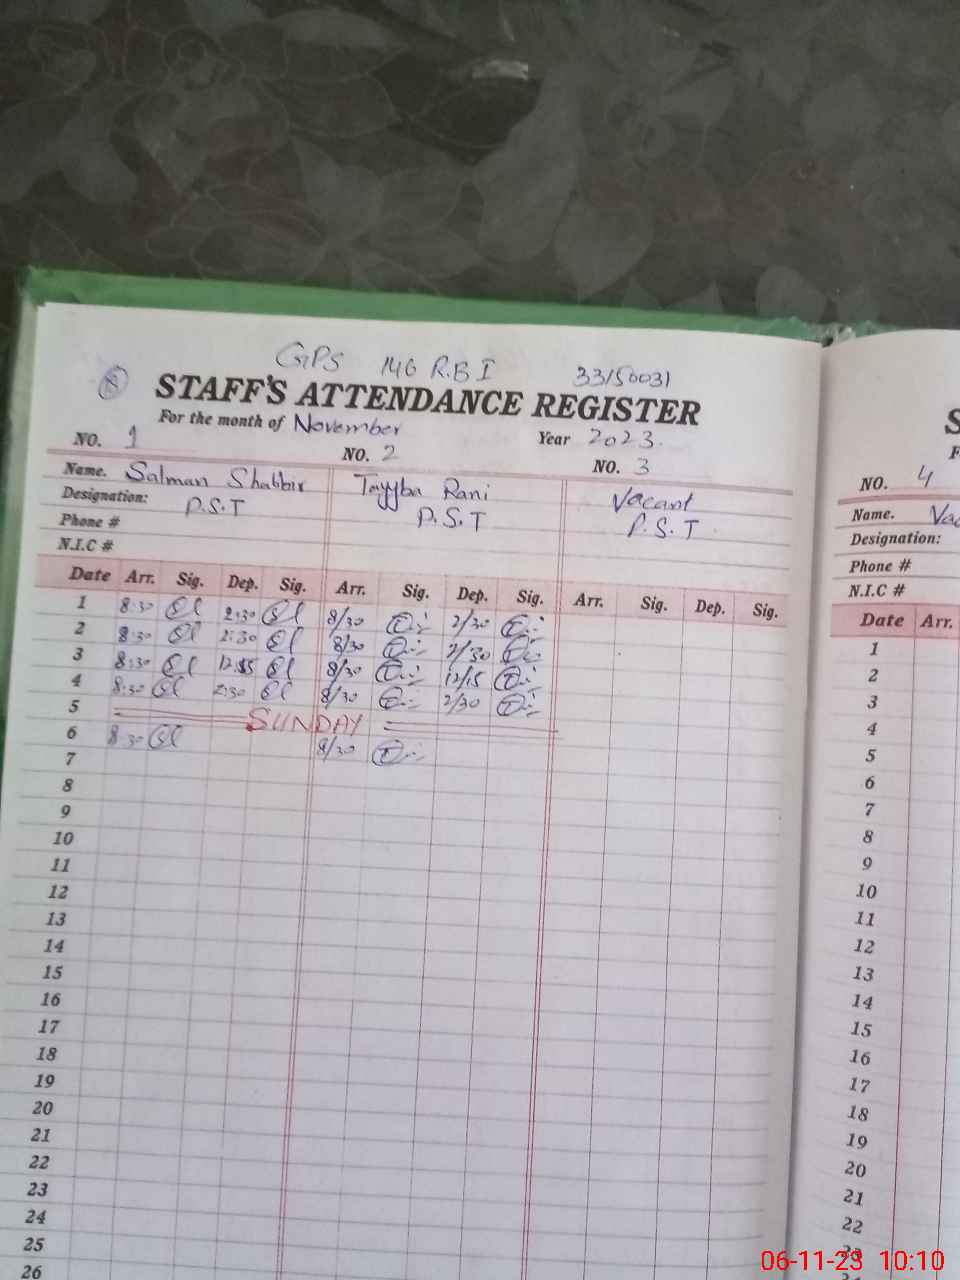 GPS 146 R.B I 33150031
STAFF'S ATTENDANCE REGISTER
For the month of November Year 2023.
NO. 1 NO. 2 NO. 3
Name. Salman Shabbir Tayyba Rani Vacant
Designation: P.S.T P.S.T P.S.T
Phone #
N.I.C #
Date Arr. Sig. Dep. Sig. Arr. Sig. Dep. Sig. Arr. Sig. Dep. Sig.
1 8:30 2:30 8/30 2/30
2 8:30 2:30 8/30 2/30
3 8:30 8/30 12/15
4 8:30 2:30 8/30 2/30
5 SUNDAY
6 8:30 8/30
7
8
9
10
11
12
13
14
15
16
17
18
19
20
21
22
23
24
25
26
NO. 4
Name.
Designation:
Phone #
N.I.C #
Date Arr.
1
2
3
4
5
6
7
8
9
10
11
12
13
14
15
16
17
18
19
20
21
22
23
06-11-23 10:10